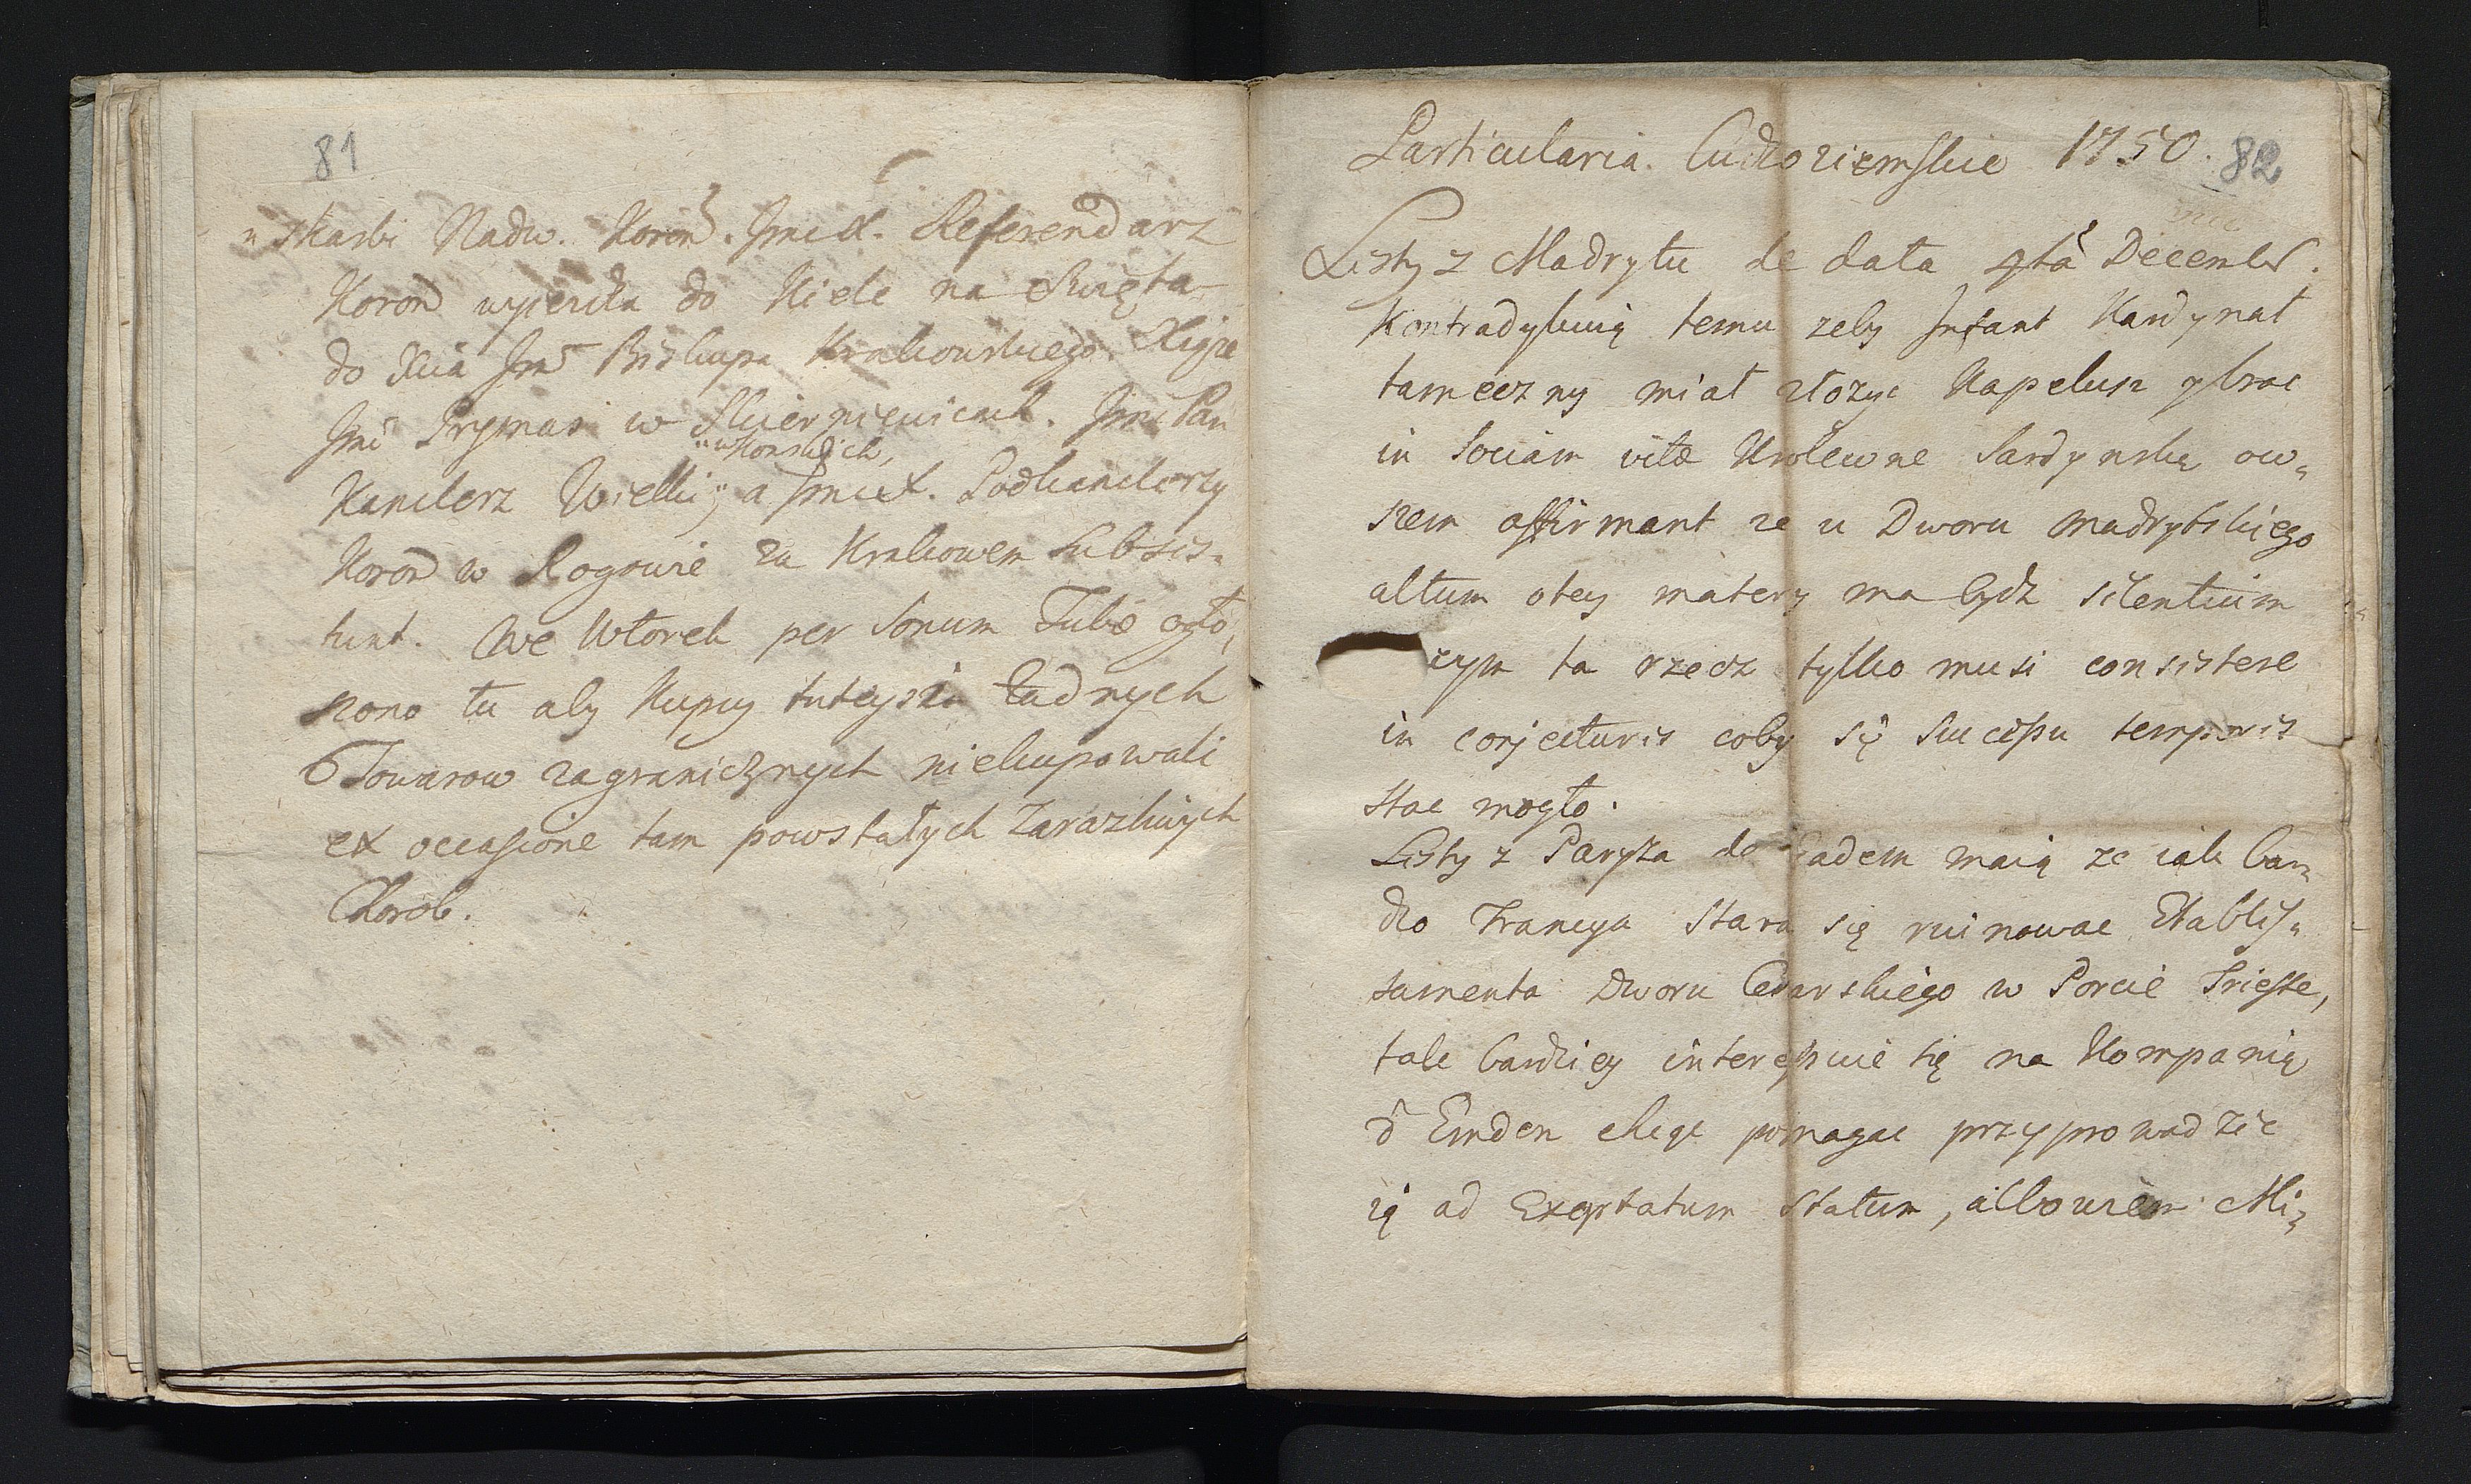 81
„Skarbi Nadw. Koron. Jmć X. Referendarz
Koron wyieżdża do Kiele na Swięta
do Xcia Jmć Biskupa Krakowskiego. Xiąże
Jmć Prymas w Skierniewicach. Jmć Pan
w Konskich,
Kanclerz Wielki, a Jmć X. Podkanclerzy
Koron w Rogowie za Krakowem Subsis„
tunt. We Wtorek per Sonum Tubæ ogło„
szono tu aby Kupcy tuteysi żadnych
Towarow zagranicznych niekupowali
ex occasione tam powstałych Zarazliwych
Chorob.
Particularia Cudzoziemskie 1750. 82
Listy z Madrytu de data 9ta Decembr.
Kontradykuią temu zeby Infant Kardynał
tameczny miał złozyc Kapelusz y brac
in Sociam vitæ Krolewne Sardynską ow„
szem affirmant ze u Dworu Madrytskiego
altum o tey matery ma bydz silentium
zym ta rzecz tylko musi consistere
in conjecturis coby się Successu temporis
stac mogło.
Listy z Paryza de eadem maią ze iak bar„
dzo Francya Stara się ruinowac Etablis„
samenta Dworu Cesarskiego w Porcie Trieste,
tak bardziey interessuie się na Kompanią
d Emden chcąc pomagac przyprowadzic
ią ad Exoptatum Statum, albowiem Mi„